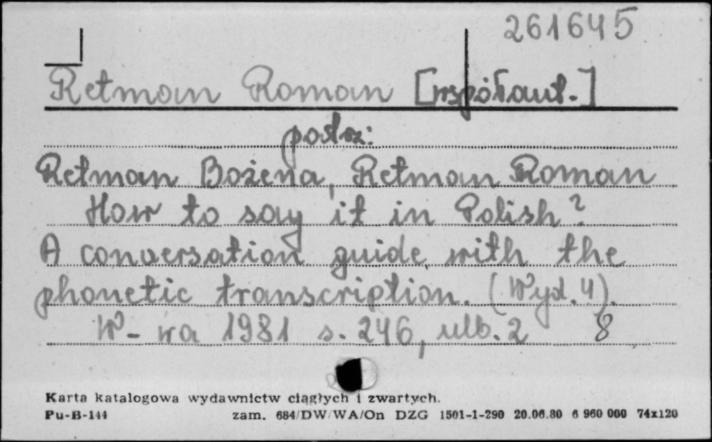 261645
Retman Roman [współaut.]
patrz:
Retman Bożena, Retman Roman
How to say it in Polish?
A conversation guide with the
phonetic transcription. (Wyd. 4).
W-wa 1981 s. 246, ulb. 2 8
Karta katalogowa wydawnictw ciągłych i zwartych.
Pu-B-144 zam. 684/DW/WA/On DZG 1501-1-290 20.06.80 6 960 000 74x120